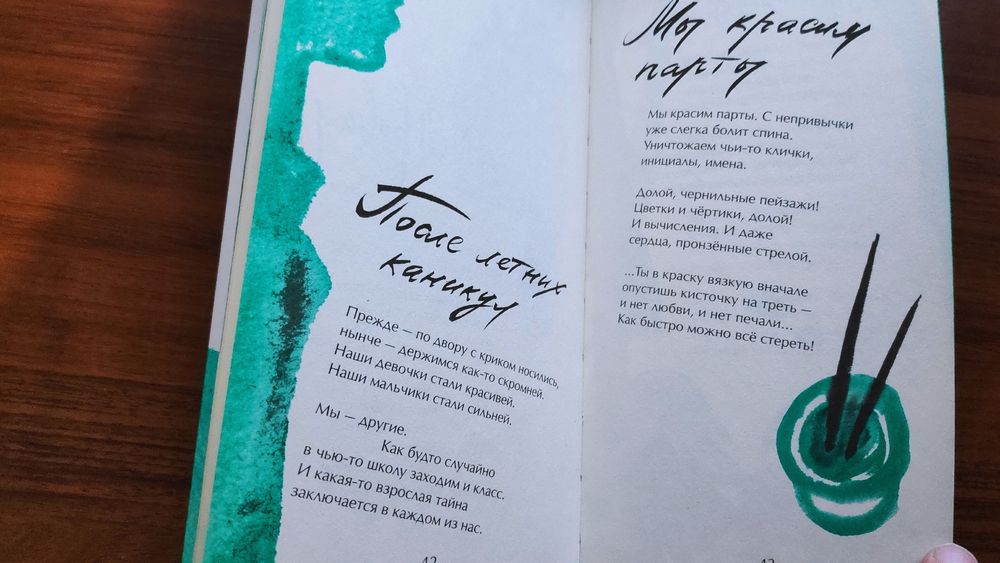 После летних
каникул
Прежде — по двору с криком носились,
нынче — держимся как-то скромней.
Наши девочки стали красивей.
Наши мальчики стали сильней.
Мы — другие.
Как будто случайно
в чью-то школу заходим и класс.
И какая-то взрослая тайна
заключается в каждом из нас.
Мы красим
парты
Мы красим парты. С непривычки
уже слегка болит спина.
Уничтожаем чьи-то клички,
инициалы, имена.
Долой, чернильные пейзажи!
Цветки и чёртики, долой!
И вычисления. И даже
сердца, пронзённые стрелой.
...Ты в краску вязкую вначале
опустишь кисточку на треть —
и нет любви, и нет печали...
Как быстро можно всё стереть!